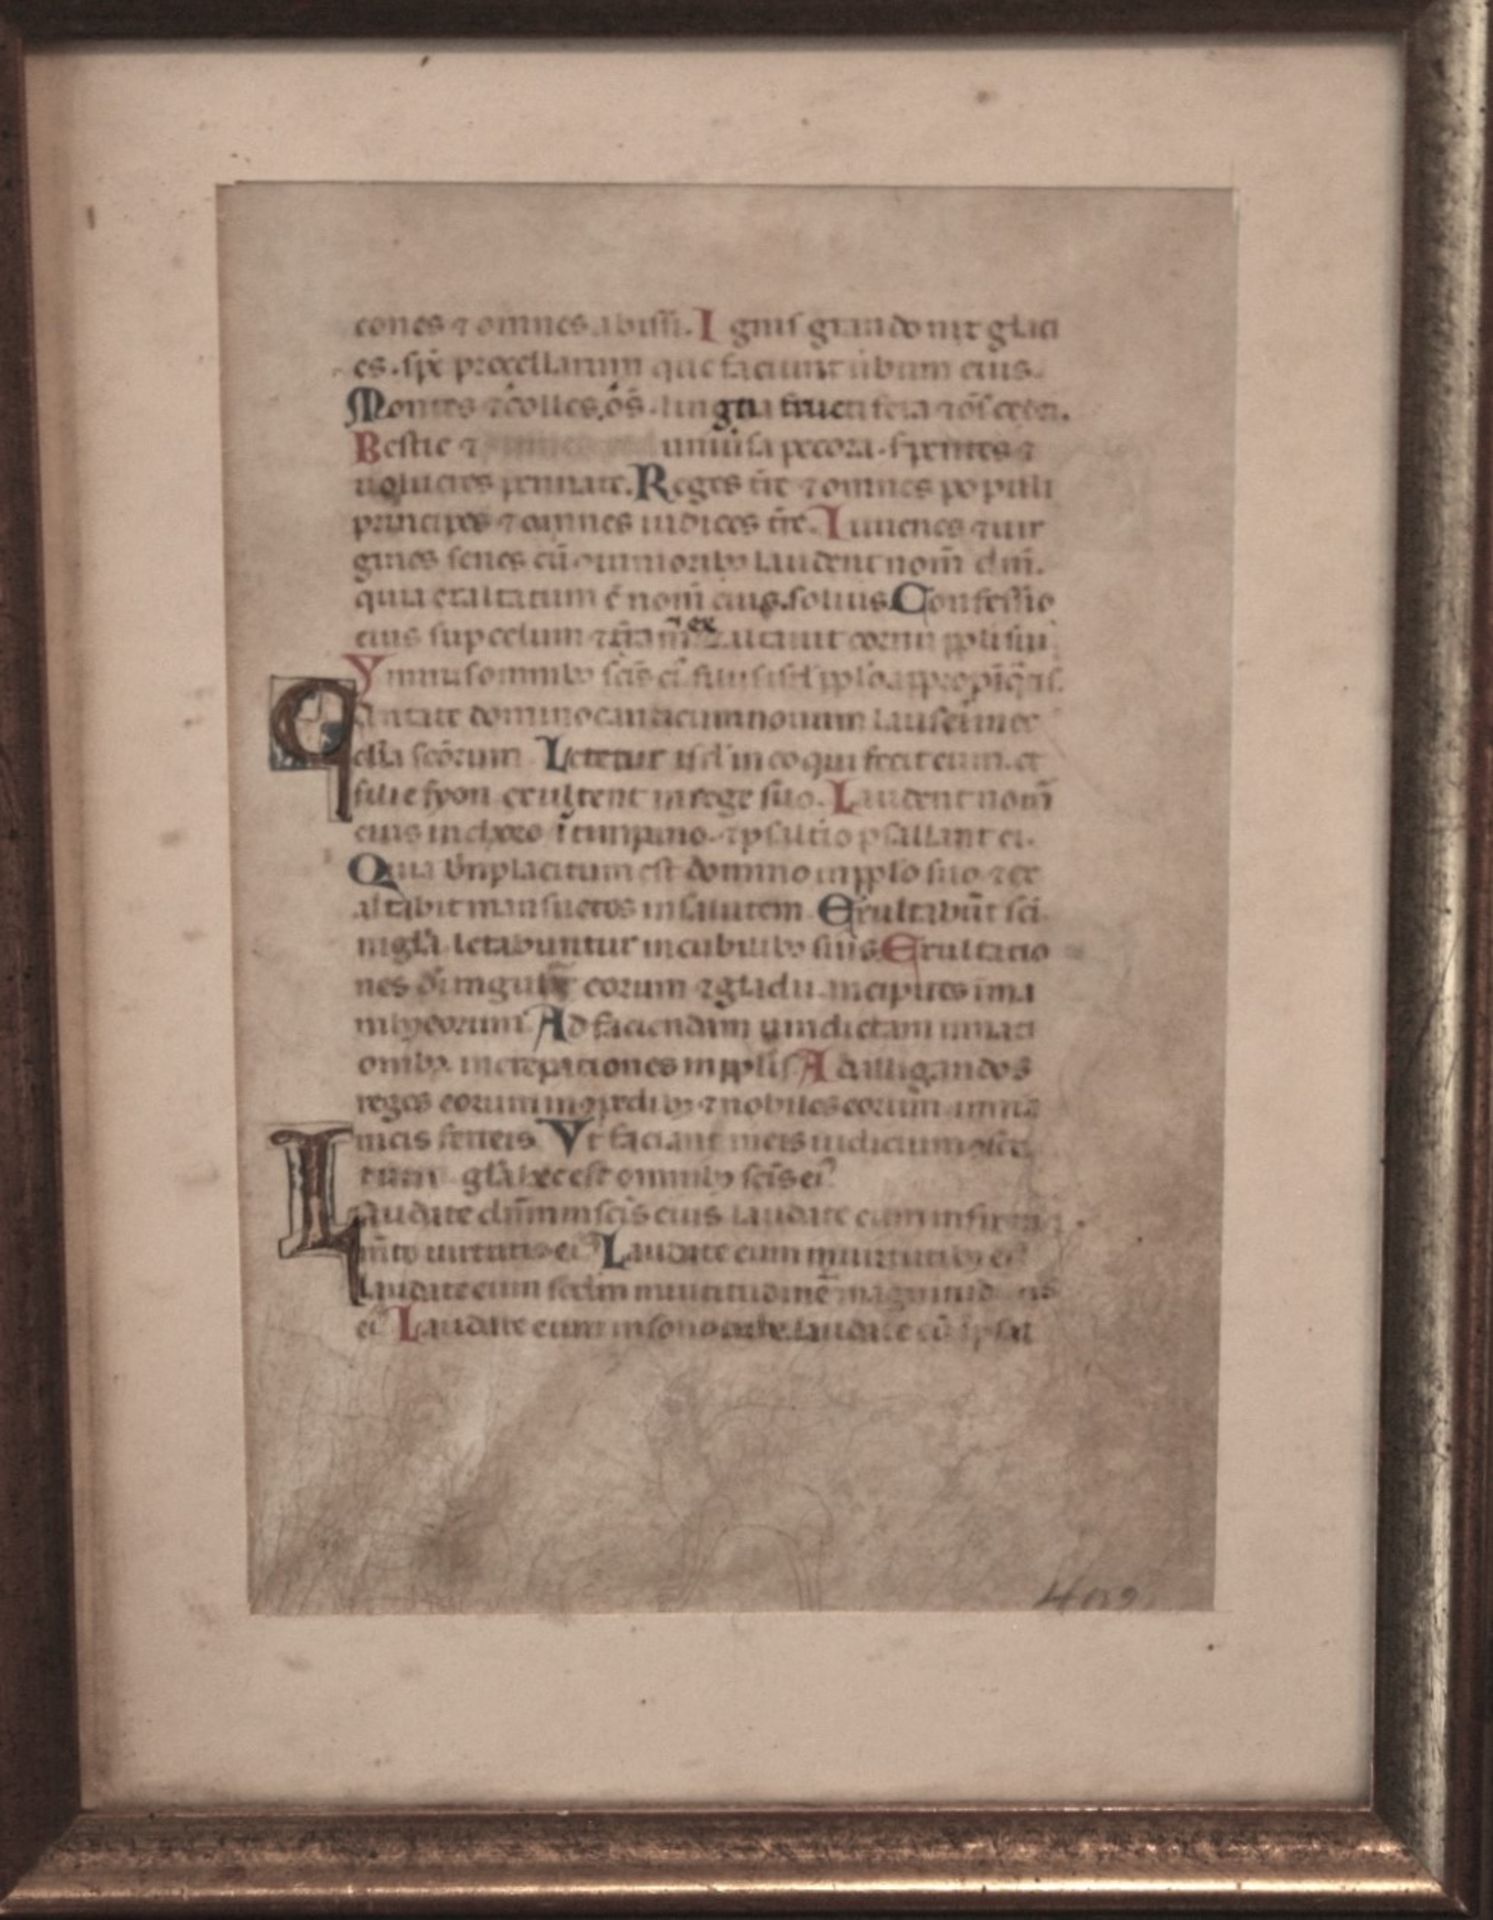 cones ⁊ omnes abissi. Ignis grando nix glaci
es. sp̄c procellarum que faciunt ūbum eius.
Montes ⁊ colles. oṡ. ligna fructifera ⁊ oṡ cedri.
Bestie ⁊ uniuˀsa pecora. sˀpentes ⁊
uolucres pennate. Reges t̄re ⁊ omnes populi
principes ⁊ omnes iudices t̄re. Iuuenes ⁊ uir
gines senes cū iunioribꝫ laudent nom̄ dn̄i.
quia exaltatum ē nom̄ eius. solius. Confessio
eius sup celum ⁊ t̄ram ⁊ exaltauit cornu ppli sui
Ymnus omnibꝫ scīs eiˀ. filiis isrl̄ pplo appropīq̄ti s.
Cantate domino canticum nouum laus ei in ec
clia scōrum Letetur isrl̄ in eo qui fecit eum. et
filie syon exultent in rege suo. Laudent nom̄
eius in choro ī timpano. ⁊ psaltˀio psallant ei.
Quia bn̄placitum est domino in pplo suo ⁊ ex
altabit mansuetos in salutem Exultabūt sci
in gl̄a letabuntur in cubilibꝫ suis Exultacio
nes dī in gutt̄e eorum ⁊ gladii ancipites i ma
nibꝫ eorum Ad faciendam uindictam in naci
onibꝫ. increpaciones in pplis Ad alligandos
reges eorum in pedibꝫ ⁊ nobiles eorum in mā
nicis ferreis Vt faciant in eis iudicium ꝯsc̄
tum gl̄a hec est omnibꝫ scīs eiˀ
Laudate dn̄m in scīs eius laudate eum in firma
m̄to uirtutis eiˀ Laudate eum in uirtutibꝫ eiˀ
Laudate eum scd̄m multitudinē magnitudinis
eiˀ Laudate eum in sono tube. laudate eū ī psal
402